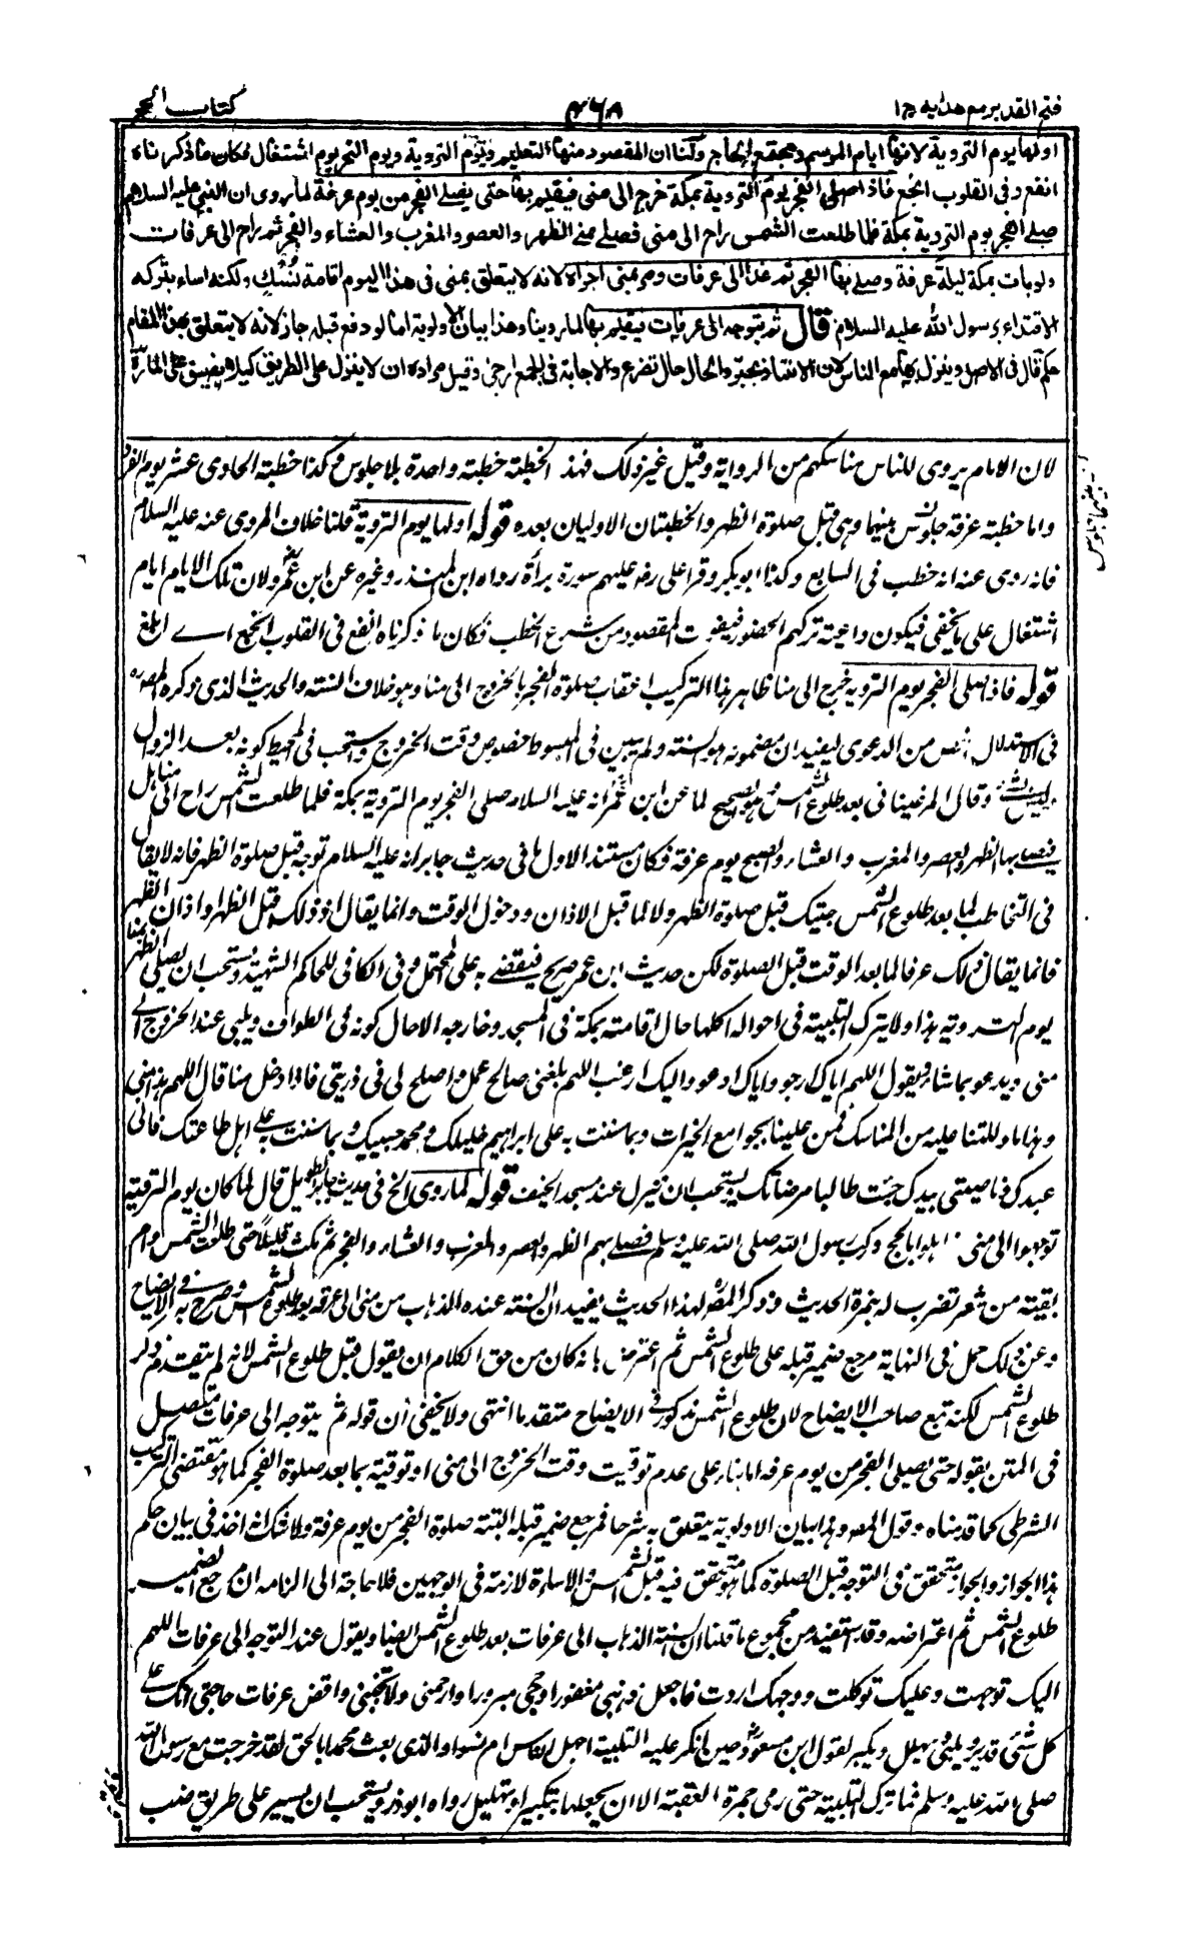 فتح القدير مع هدايه ج ١
٣٦٨
كتاب الحج
اولها يوم التروية لانها ايام الموسم ومجتمع الحاج ولنا ان المقصود منها التعليم ويوم التروية ويوم النحر يوم اشتغال فكان ما ذكرناه
انفع وفى القلوب انجع فاذا صلى الفجر يوم التروية بمكة خرج الى منى فيقيم بها حتى يصلى الفجر من يوم عرفة لما روى ان النبى عليه السلام
صلى الفجر يوم التروية بمكة فلما طلعت الشمس راح الى منى فصلى بمنى الظهر والعصر والمغرب والعشاء والفجر ثم راح الى عرفات
ولو بات بمكة ليلة عرفة وصلى بها الفجر ثم غدا الى عرفات ومر بمنى اجزاه لانه لا يتعلق بمنى فى هذا اليوم اقامة نسك ولكنه اساء بتركه
الاقتداء برسول الله عليه السلام قال ثم يتوجه الى عرفات فيقيم بها لما روينا وهذا بيان الاولوية اما لو دفع قبله جاز لانه لا يتعلق بهذا المقام
حكم قال فى الاصل وينزل بها مع الناس لان الانتباذ تجبر والحال حال تضرع والاجابة فى الجمع ارجى وقيل مراده ان لا ينزل على الطريق كيلا يضيق على المارة
لان الامام يروى للناس مناسكهم من الرواية وقيل غير ذلك فهذه الخطبة خطبة واحدة بلا جلوس وكذا خطبة الحادى عشر يوم النفر
واما خطبة عرفة جلوس بينهما وهى قبل صلوة الظهر والخطبتان الاوليان بعده قوله اولها يوم التروية قلنا خلاف المروى عنه عليه السلام
فانه روى عنه انه خطب فى السابع وكذا ابو بكر وقرأ على رض عليهم سورة براة رواه ابن المنذر وغيره عن ابن عمر ولان تلك الايام ايام
اشتغال على ما يخفى فيكون داعية تركهم الحضور فيفوت المقصود من شرع الخطب فكان ما ذكرناه انفع فى القلوب انجع اے ابلغ
قوله فاذا صلى الفجر يوم التروية خرج الى منا ظاهر هذا التركيب اعقاب صلوة الفجر بالخروج الى منا وهو خلاف السنة والحديث الذى ذكره المصره
فى الاستدلال اخص من الدعوى ليفيد ان مضمونه هو السنة ولم يبين فى المبسوط خصوص وقت الخروج واستحب فى المحيط كونه بعد الزوال
وليس بشئ وقال المرغينانى بعد طلوع الشمس وهو الصحيح لما عن ابن عمر انه عليه السلام صلى الفجر يوم التروية بمكة فلما طلعت الشمس راح الى منا
فصلى بها الظهر والعصر والمغرب والعشاء والصبح يوم عرفة فكان مستند الاول ما فى حديث جابر انه عليه السلام توجه قبل صلوة الظهر فانه لا يقال
فى التخاطب لما بعد طلوع الشمس جئتك قبل صلوة الظهر ولا لما قبل الاذان ودخول الوقت وانما يقال اذ ذاك قبل الظهر او اذان الظهر
فانما يقال ذلك عرفا لما بعد الوقت قبل الصلوة لكن حديث ابن عمر صريح فيقضى به على المحتمل وفى الكافى للحاكم الشهيد ويستحب ان يصلى الظهر بمنا
يوم التروية هذا ولا يترك التلبية فى احواله كلها حال اقامته بمكة فى المسجد وخارجه الا حال كونه فى الطواف ويلبى عند الخروج الے
منى ويدعو بما شاء فيقول اللهم اياك ارجو واياك ادعو واليك ارغب اللهم بلغنى صالح عمل واصلح لى فى ذريتى فاذا دخل منا قال اللهم هذا منى
وهذا ما دللتنا عليه من المناسك فمن علينا بجوامع الخيرات وبما مننت به على ابراهيم خليلك ومحمد حبيبك وبما مننت به على اهل طاعتك فانى
عبدك وناصيتى بيدك جئت طالبا مرضاتك يستحب ان ينزل عند مسجد الخيف قوله لما روى الخ فى حديث جابر الطويل قال لما كان يوم التروية
توجهوا الى منى اهلوا بالحج وركب رسول الله صلى الله عليه وسلم فصلى بهم الظهر والعصر والمغرب والعشاء والفجر ثم مكث قليلاً حتى طلعت الشمس وامر
بقبة من شعر تضرب له بنمرة الحديث وذكر المصره لهذا الحديث يفيد ان السنة عنده الذهاب من منى الى عرفة بعد طلوع الشمس وصرح به فى الايضاح
وعن ذلك حمل فى النهاية مرجع ضمير قبله على طلوع الشمس ثم اعترض بانه كان من حق الكلام ان يقول قبل طلوع الشمس لانه لم يتقدم ذكر
طلوع الشمس لكنه تبع صاحب الايضاح لان طلوع الشمس مذكور فى الايضاح متقدما انتهى ولا يخفى ان قوله ثم يتوجه الى عرفات متصل
فى المتن بقوله حتى يصلى الفجر من يوم عرفة اما بناء على عدم توقيت وقت الخروج الى منى او توقيته بما بعد صلوة الفجر كما هو مقتضى التركيب
الشرطى كما قدمناه وقول المصره وهذا بيان الاولوية يتعلق به شرحا فمرجع ضمير قبله البتة صلوة الفجر من يوم عرفة ولا شك انه اخذ فى بيان حكم
هذا الجواز والجواز متحقق فى التوجه قبل الصلوة كما هو متحقق فيه قبل الشمس والاساءة لازمة فى الوجهين فلا حاجة الى الزامه ان مرجع الضمير
طلوع الشمس ثم اعتراضه وقد استفيد من مجموع ما قلنا ان السنة الذهاب الى عرفات بعد طلوع الشمس ايضا ويقول عند التوجه الى عرفات اللهم
اليك توجهت وعليك توكلت ووجهك اردت فاجعل ذنبى مغفورا وحجى مبرورا وارحمنى ولا تخيبنى واقض عرفات حاجتى انك على
كل شئ قدير ويلبى ويهلل ويكبر لقول ابن مسعود حين انكر عليه التلبية اجهل الناس ام نسوا والذى بعث محمدا بالحق لقد خرجت مع رسول الله
صلى الله عليه وسلم فما ترك التلبية حتى رمى جمرة العقبة الا ان يخلطها بتكبير او تهليل رواه ابو ذر ويستحب ان يسير على طريق ضب